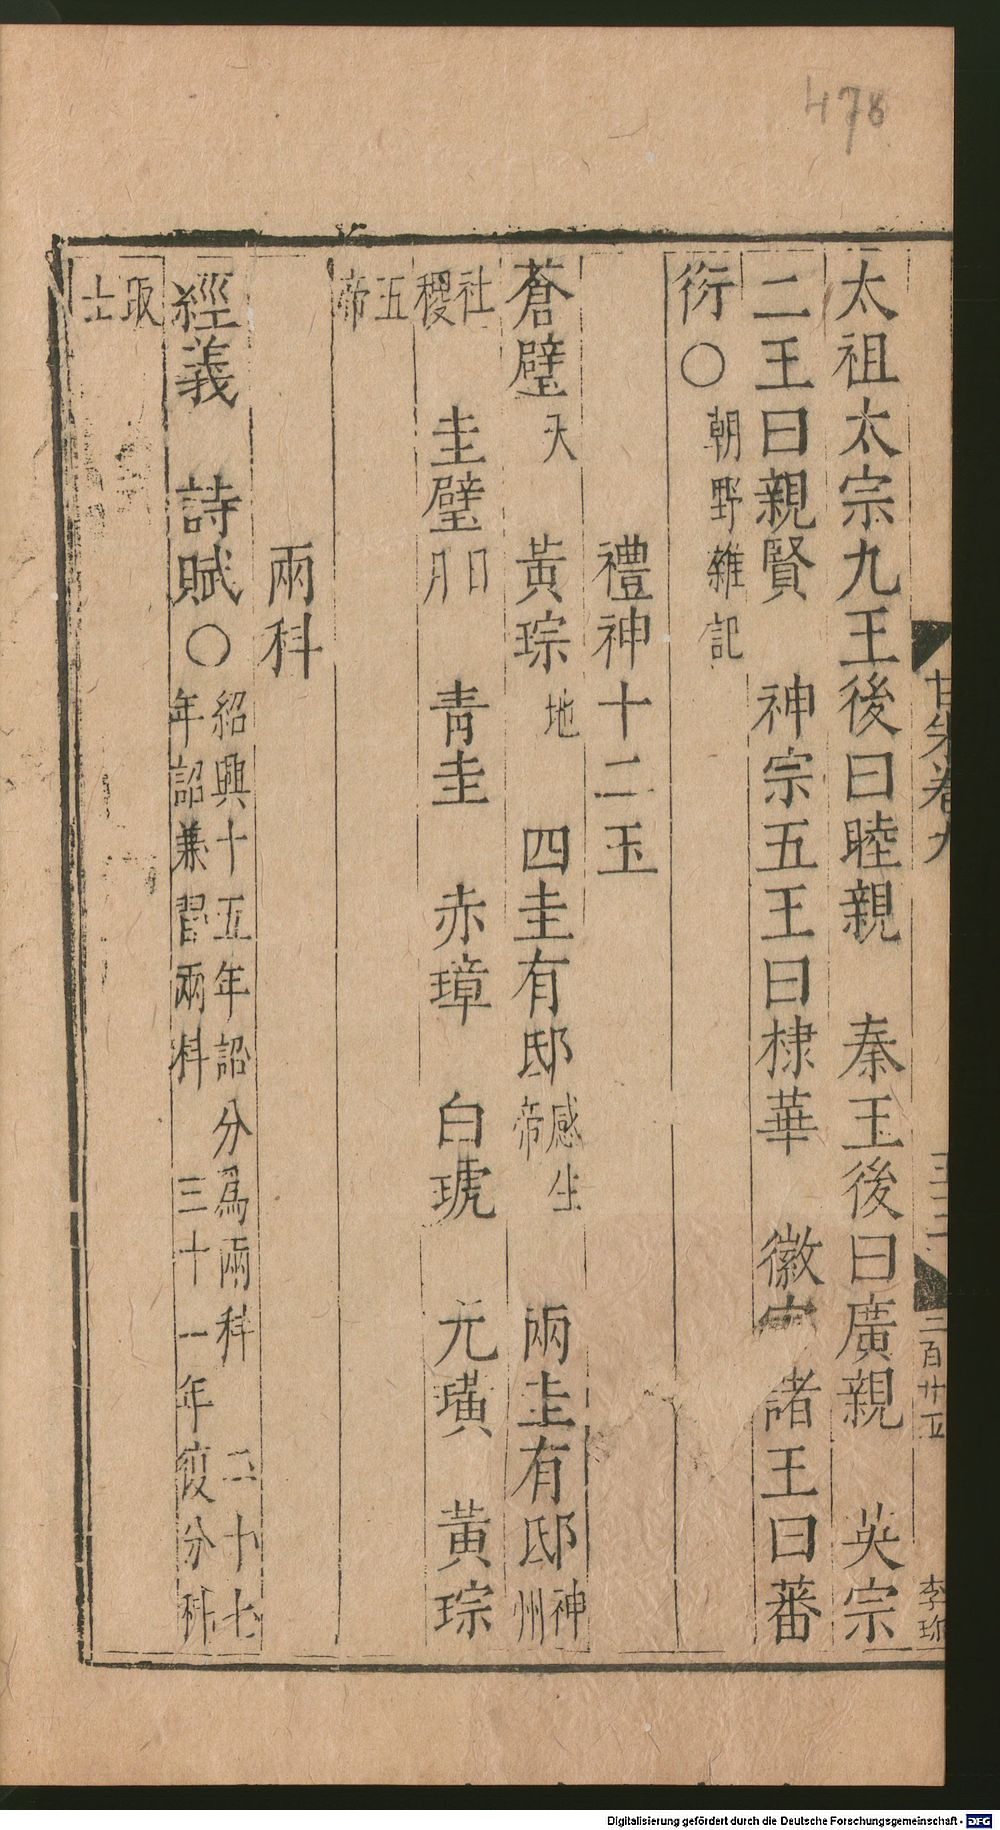 478
太祖太宗九王後曰睦親 秦王後曰廣親 英宗
二王曰親賢 神宗五王曰棣華 徽宗諸王曰蕃
衍〇朝野雜記
禮神十二玉
蒼璧天 黃琮地 四圭有邸感生帝 兩圭有邸神州
社稷 圭璧日月 青圭 赤璋 白琥 元璜 黃琮
五帝
兩科
經義 詩賦〇紹興十五年詔分爲兩科 二十七
年詔兼習兩科 三十一年復分科
取士
甘朱卷九
二百廿五
李珎
Digitalisierung gefördert durch die Deutsche Forschungsgemeinschaft - DFG